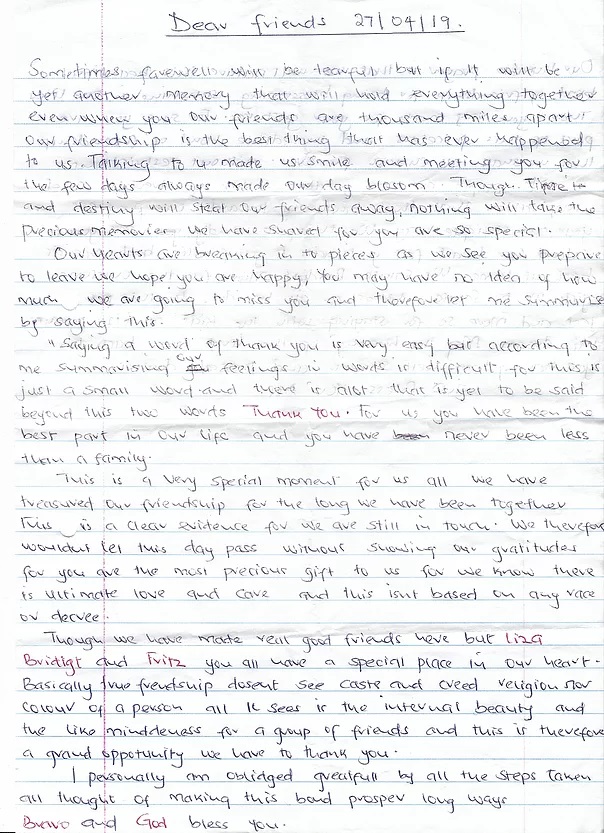 Dear friends 27/04/19.
Sometimes farewell will be tearful but if it will be
yet another memory that will hold everything together
even when you our friends are thousand miles apart
our friendship is the best thing that has ever happened
to us. Talking to u made us smile and meeting you for
the few days always made our day blosom. Though Time
and destiny will steal our friends away, nothing will take the
precious memories we have shared for you are so special.
Our hearts are breaking in to pieces as we see you prepare
to leave we hope you are happy, You may have no iden of how
much we are going to miss you and therefore let me summarise
by saying this.
"Saying a word of thank you is very easy but according to
me summarising our feelings in words is difficult for this is
just a small word and there is alot that is yet to be said
beyond this two words Thank You. For us you have been the
best part in our life and you have never been less
than a family.
This is a very special moment for us all we have
treasured our friendship for the long we have been together
This is a clear evidence for we are still in touch. We therefore
wouldnt let this day pass without showing our gratitudes
for you are the most precious gift to us for we know there
is ultimate love and care and this isnt based on any race
or decree.
Though we have made real good friends here but Liza
Bridigt and Fritz you all have a special place in our heart.
Basically true frendship dosent see caste and creed religion nor
colour of a person all it sees is the internal beauty and
the like mindedness for a group of friends and this is therefore
a grand oppotunity we have to thank you.
I personally am oblidged greatfull by all the steps taken
all thought of making this bond prosper long ways
Bravo and God bless you.